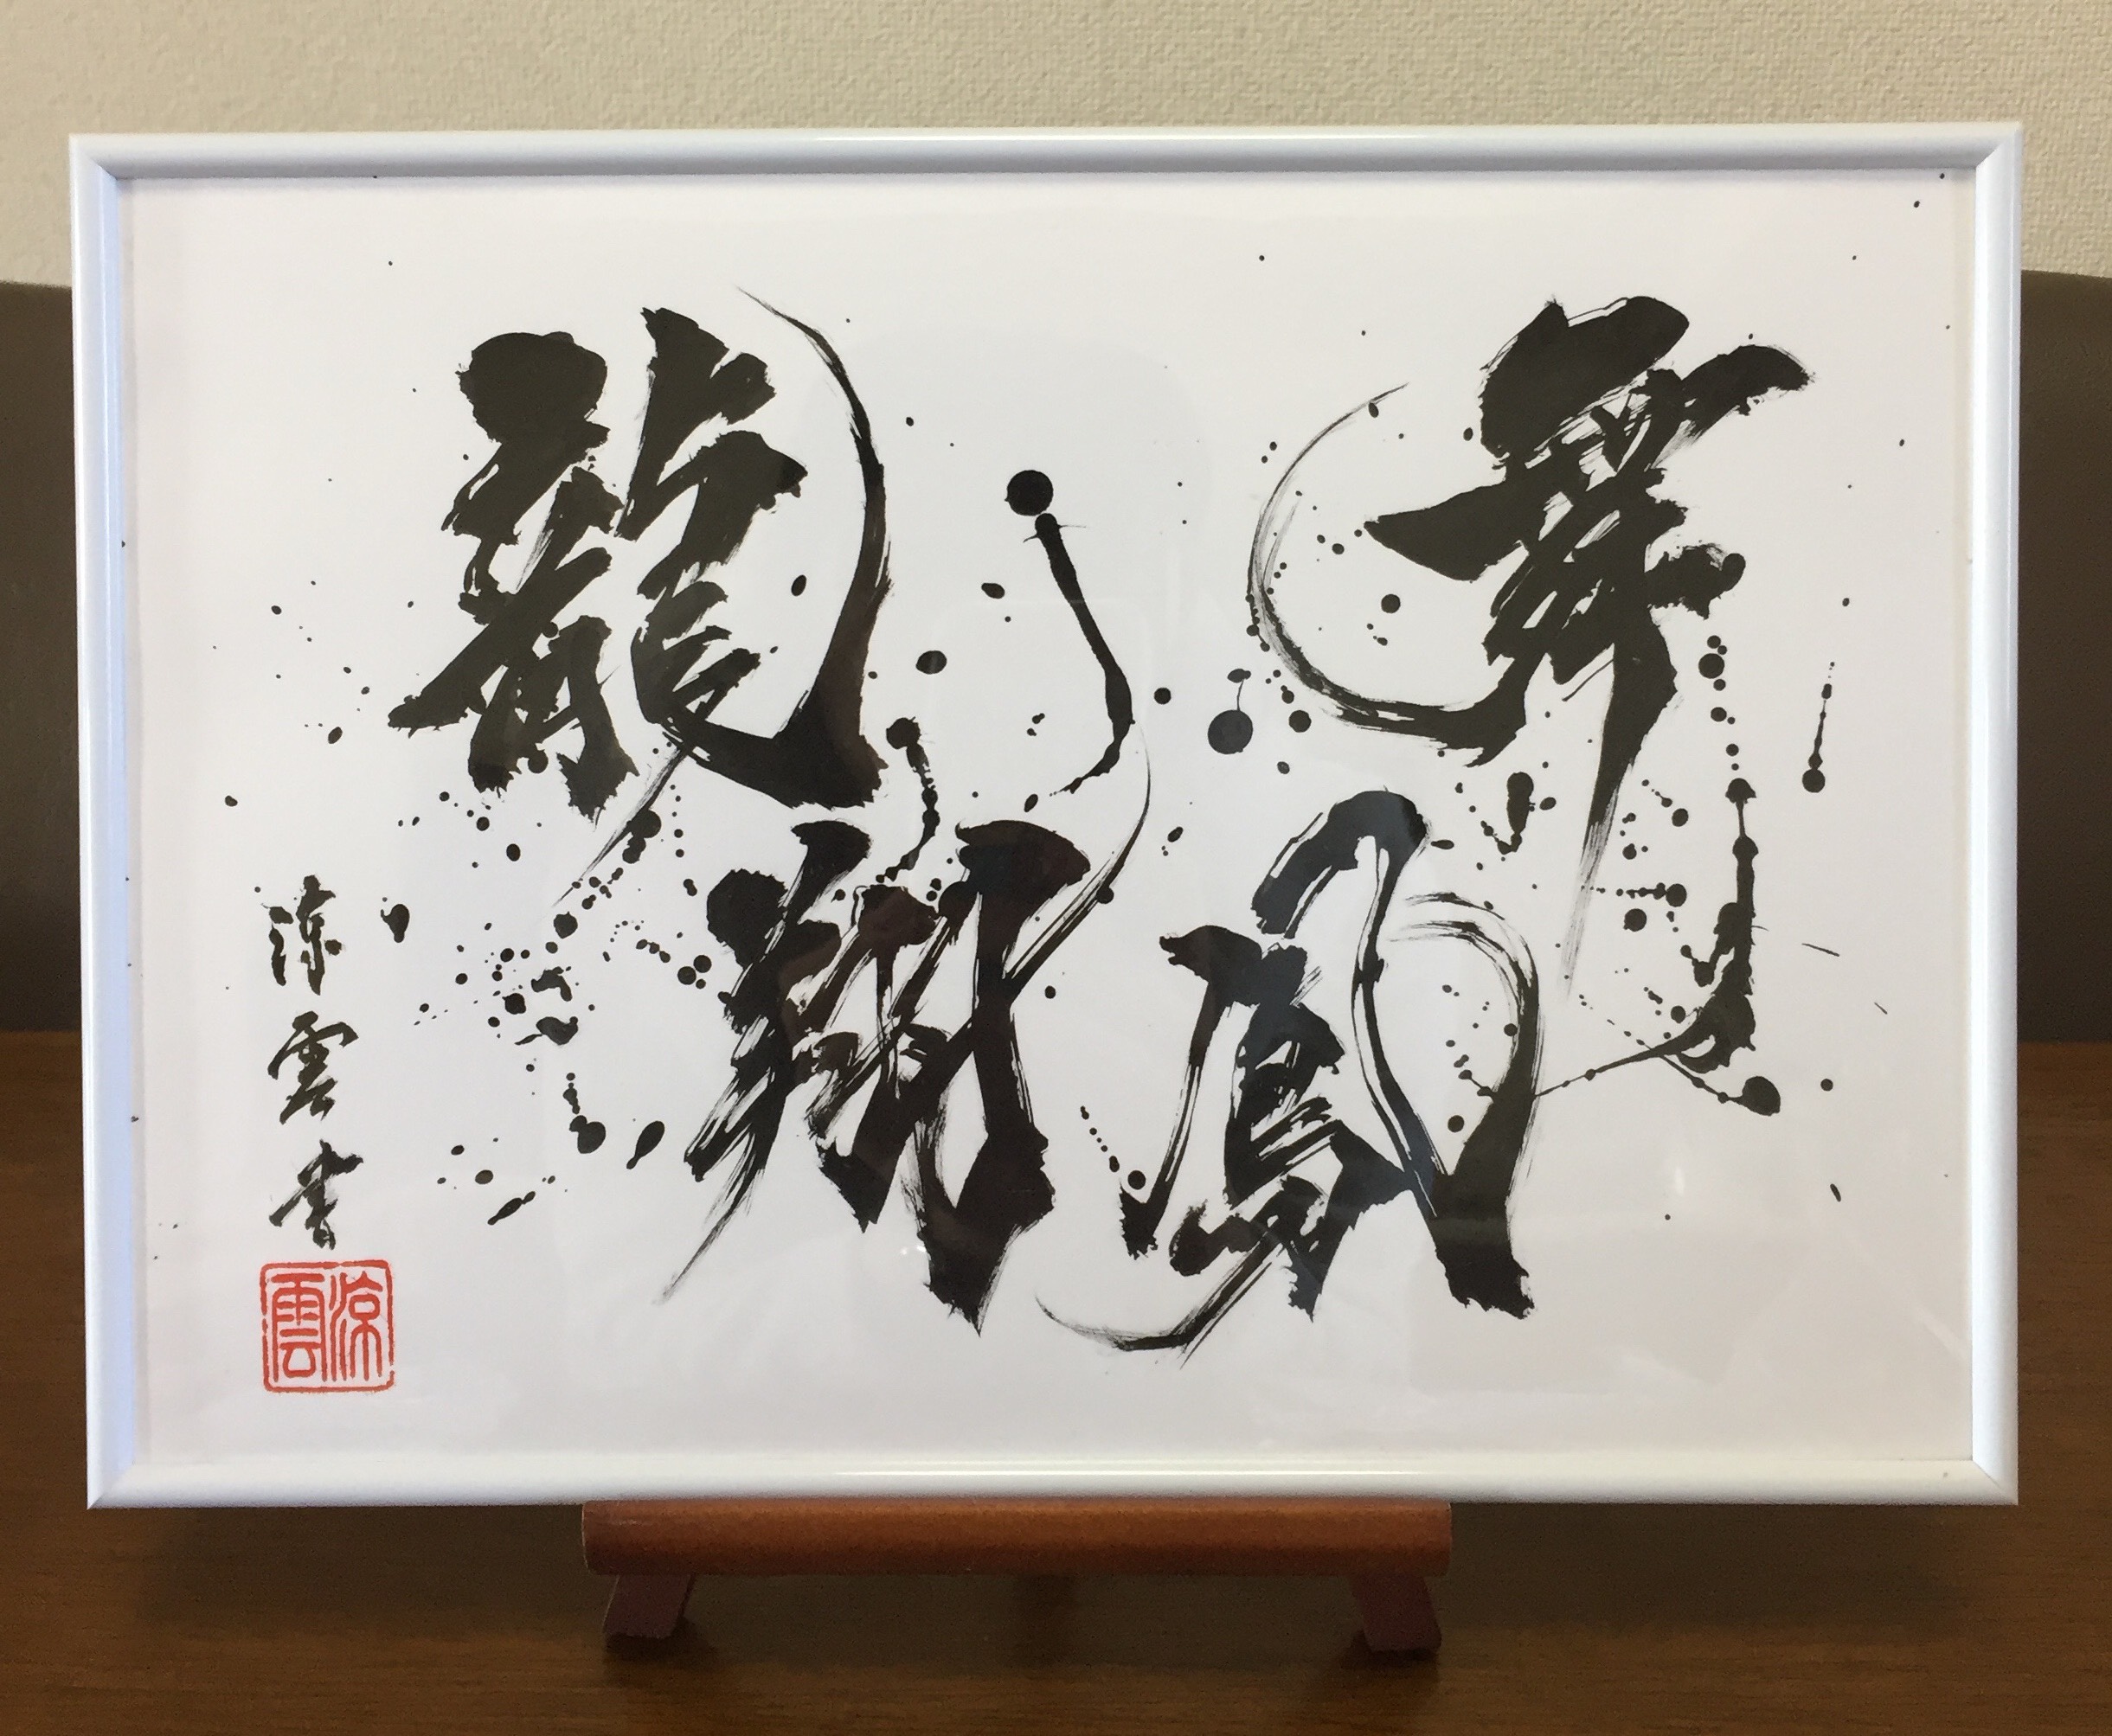 舞鳳
龍翔
涼雲書
涼雲